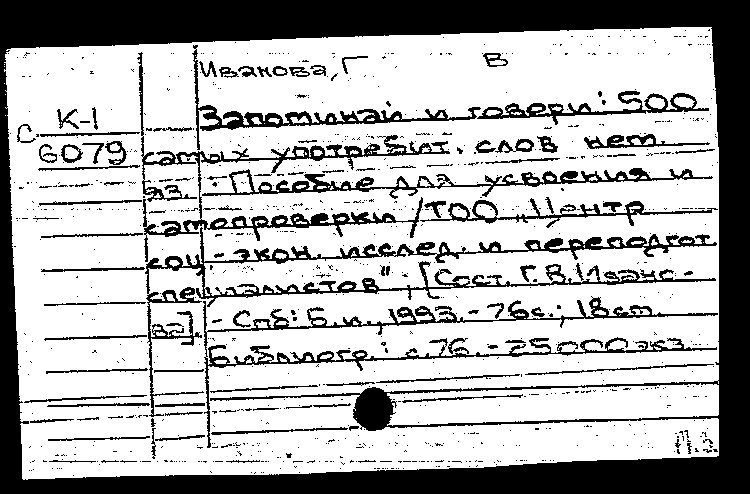 Иванова, Г В
К-1
С
6079
Запоминай и говори: 500
самых употребит. слов нем.
яз.: Пособие для усвоения и
самопроверки / ТОО „Центр
соц.-экон. исслед. и переподгот.
специалистов"; [Сост. Г.В. Ивано-
ва]. - Спб: Б.и., 1993. - 76с.; 18см.
Библиогр.: с.76. - 25000 экз.